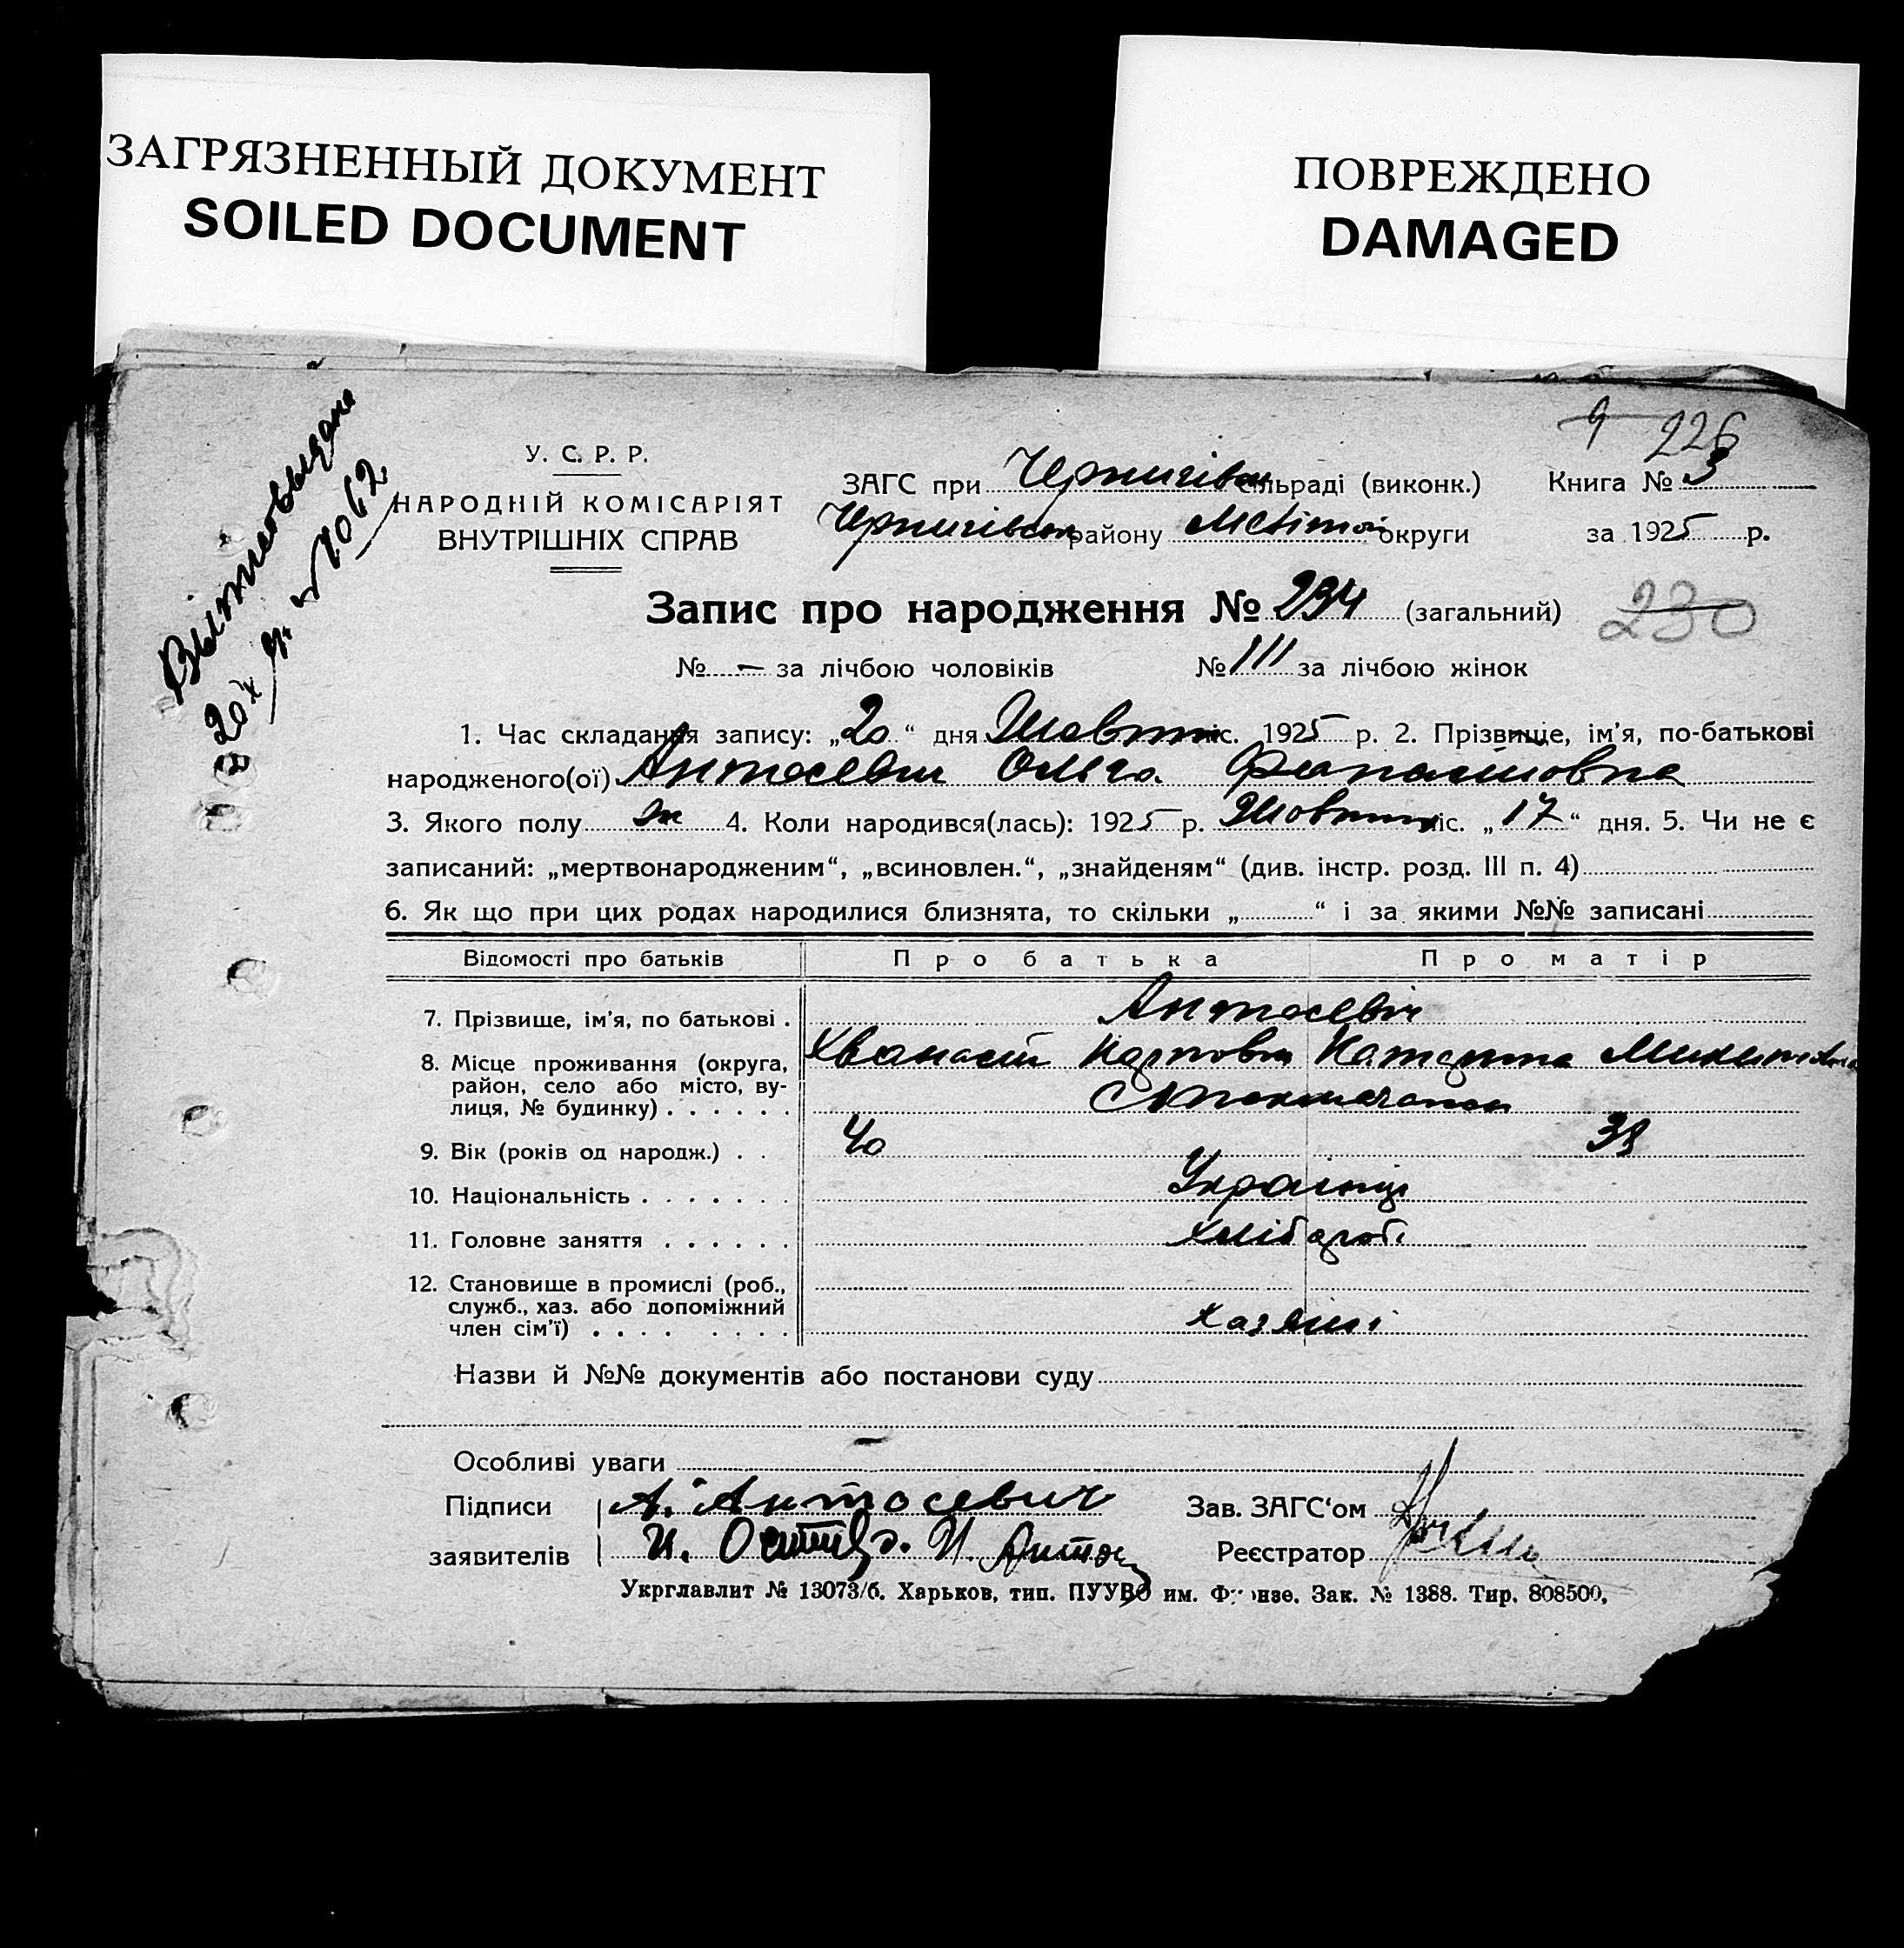 ЗАГРЯЗНЕННЫЙ ДОКУМЕНТ
SOILED DOCUMENT
ПОВРЕЖДЕНО
DAMAGED
9 226
У. С. Р. Р.
НАРОДНІЙ КОМІСАРІЯТ
ВНУТРІШНІХ СПРАВ
ЗАГС при Чернигівск сільраді (виконк.) Книга № 3
Чернигівськ району округи за 1925 р.
Запис про народження № 234 (загальний) 230
№ - за лічбою чоловіків № 111 за лічбою жінок
1. Час складання запису: „20“ дня Жовтня міс. 1925 р. 2. Прізвище, ім'я, по-батькові
народженого(ої) Антосевич Ольга
3. Якого полу ж 4. Коли народився(лась): 1925 р. Жовтня міс. „17“ дня. 5. Чи не є
записаний: „мертвонародженим“, „всиновлен.“, „знайденям“ (див. інстр. розд. III п. 4)
6. Як що при цих родах народилися близнята, то скільки „ “ і за якими №№ записані
Відомості про батьків Про батька Про матір
7. Прізвище, ім'я, по батькові . Антосевич
8. Місце проживання (округа, Хванасій Карпович Катерина
район, село або місто, ву-
лиця, № будинку) . . . . . .
9. Вік (років од народж.) . . 40
10. Національність . . . . . . . Українці
11. Головне заняття . . . . . . хлібороб.
12. Становище в промислі (роб.,
служб., хаз. або допоміжний
член сім'ї) . . . . . . . . хазяіні
Назви й №№ документів або постанови суду
Особливі уваги -
Підписи А. Антосевич Зав. ЗАГС'ом
заявителів И. И. Реєстратор
Укрглавлит № 13073/б. Харьков, тип. ПУУВО им. Фрунзе. Зак. № 1388. Тир. 808500.